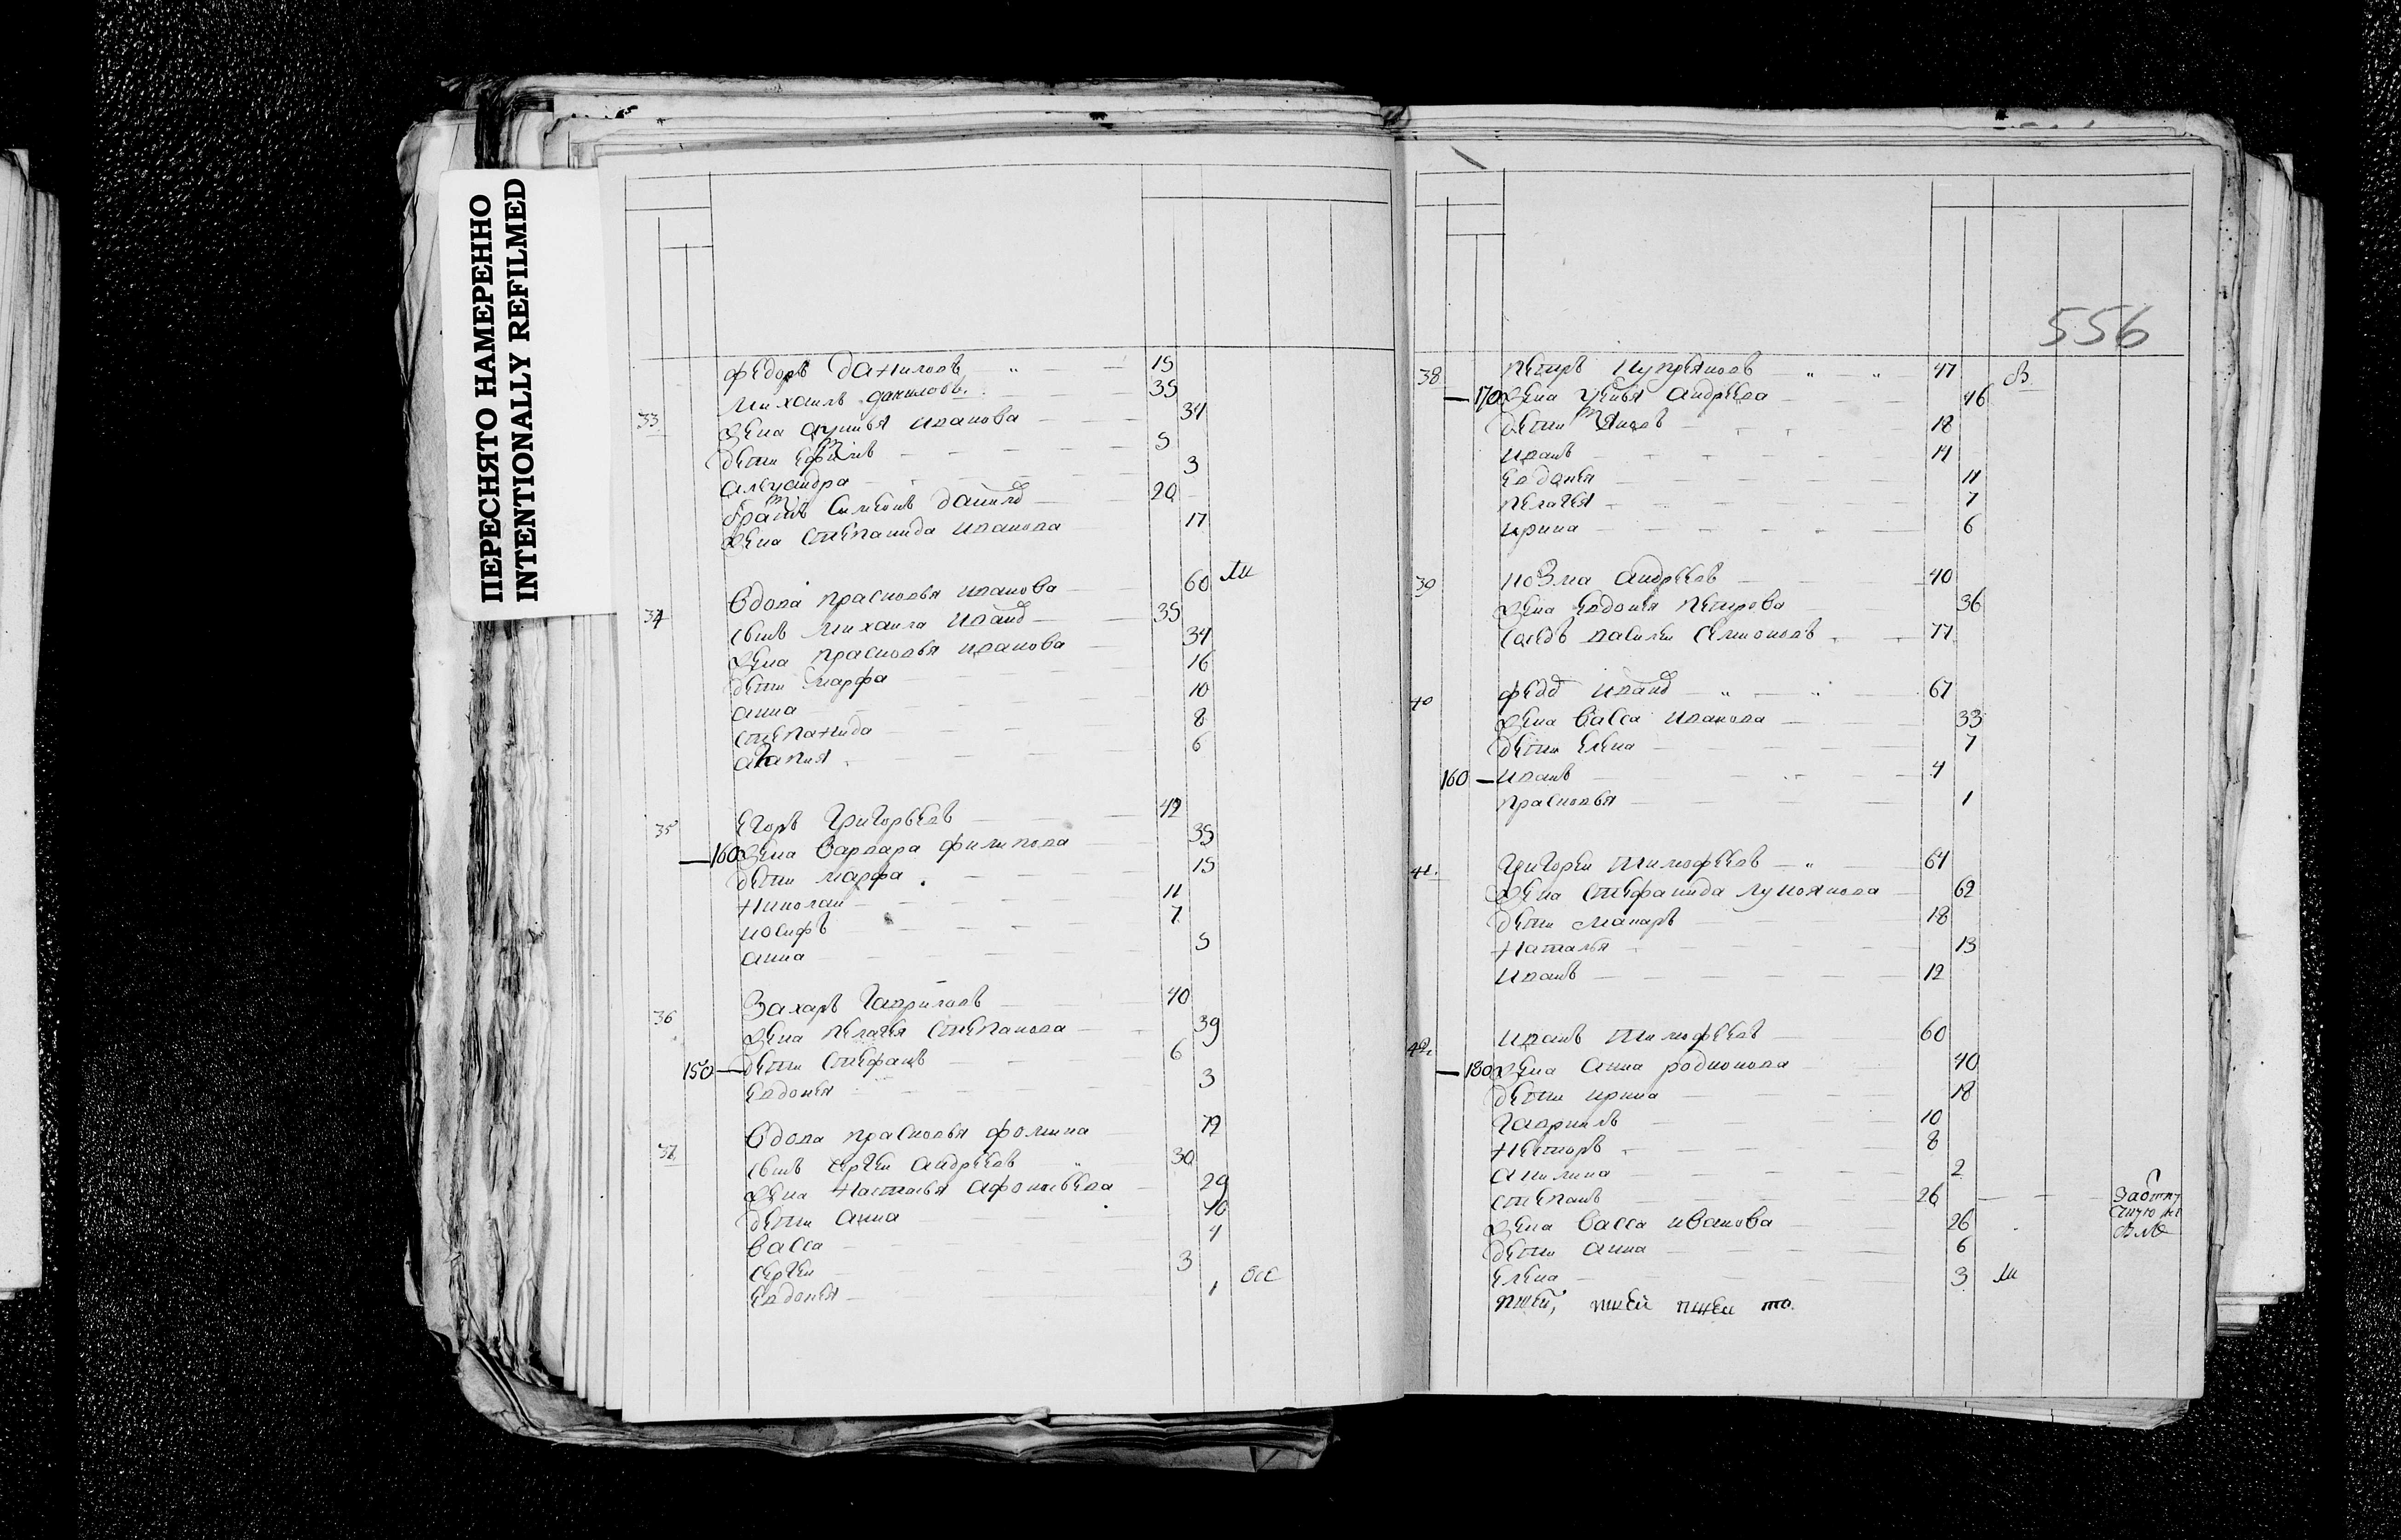 ПЕРЕСНЯТО НАМЕРЕННО
INTENTIONALLY REFILMED
Федоръ Даниловъ 15
Михаилъ Даниловъ 35
33 Жена Акулина Иванова 34
дети Ефимъ 5
Александра 3
братъ Симеонъ Данилов 20
Жена Степанида Иванова 17
Вдова Прасковья Иванова 60
34 сынъ Михаила Иванов 35
Жена Прасковья Иванова 34
дети Марфа 16
Анна 10
Степанида 8
Агапия 6
35 Егоръ Григорьевъ 42
160 Жена Варвара Филипова 35
дети Марфа 15
Николай 11
Иосифъ 7
Анна 5
36 Захаръ Гавриловъ 40
Жена Пелагея Степанова 39
150 дети Стефанъ 6
Евдокея 3
Вдова Прасковья Фомина 72
37 сынъ Сергей Андреевъ 30
Жена Наталья Афонасьева 29
дети Анна 10
Васса 4
Сергей 3
Евдокея 1
556
38 Петръ Купреяновъ 47
170 Жена Андреева 46
дети Яковъ 18
Иванъ 14
Евдокея 11
Пелагея 7
Ирина 6
39 Козма Андреевъ 40
Жена Евдокея Петрова 36
Василей Семионовъ 77
40 Федо Иванов 67
Жена Васса Иванова 33
дети Елена 7
160 Иванъ 4
Прасковья 1
41. Григорей Тимофеевъ 64
Жена Стефанида Лукоянова 62
дети Макаръ 18
Наталья 13
Иванъ 12
42. Иванъ Тимофеевъ 60
180 Жена Анна Родионова 40
дети Ирина 18
Гаврилъ 10
Несторъ 8
Акилина 2
Степанъ 26
Жена Васса Иванова 26
дети Анна 6
Елена 3